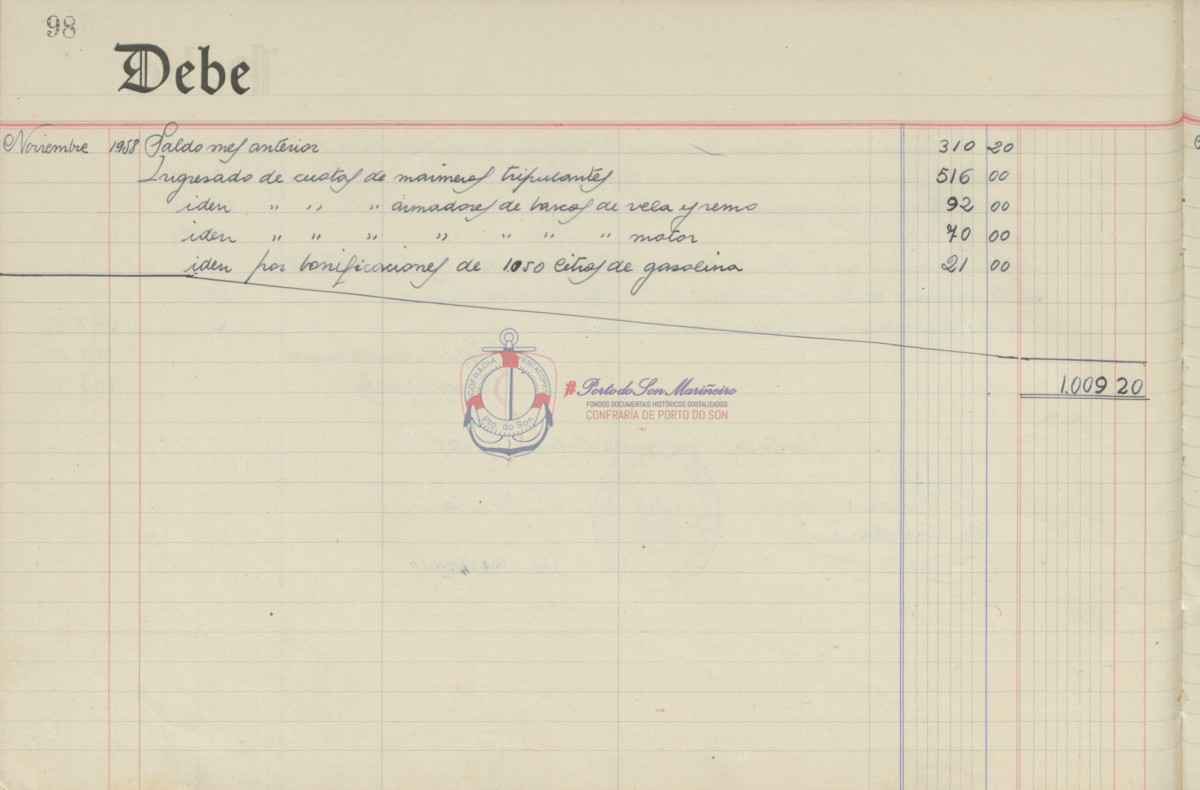 98
Debe
Noviembre 1958 Saldo mes anterior 310 20
Ingresado de cuotas de marineros tripulantes 516 00
iden " " " armadores de barcos de vela y remo 92 00
iden " " " " " " " motor 70 00
iden por bonificaciones de 1050 litros de gasolina 21 00
1.009 20
COFRADIA PESCADORES
Pto. do Son
# Porto do Son Mariñeiro
FONDOS DOCUMENTAIS HISTÓRICOS DIXITALIZADOS
CONFRARÍA DE PORTO DO SON